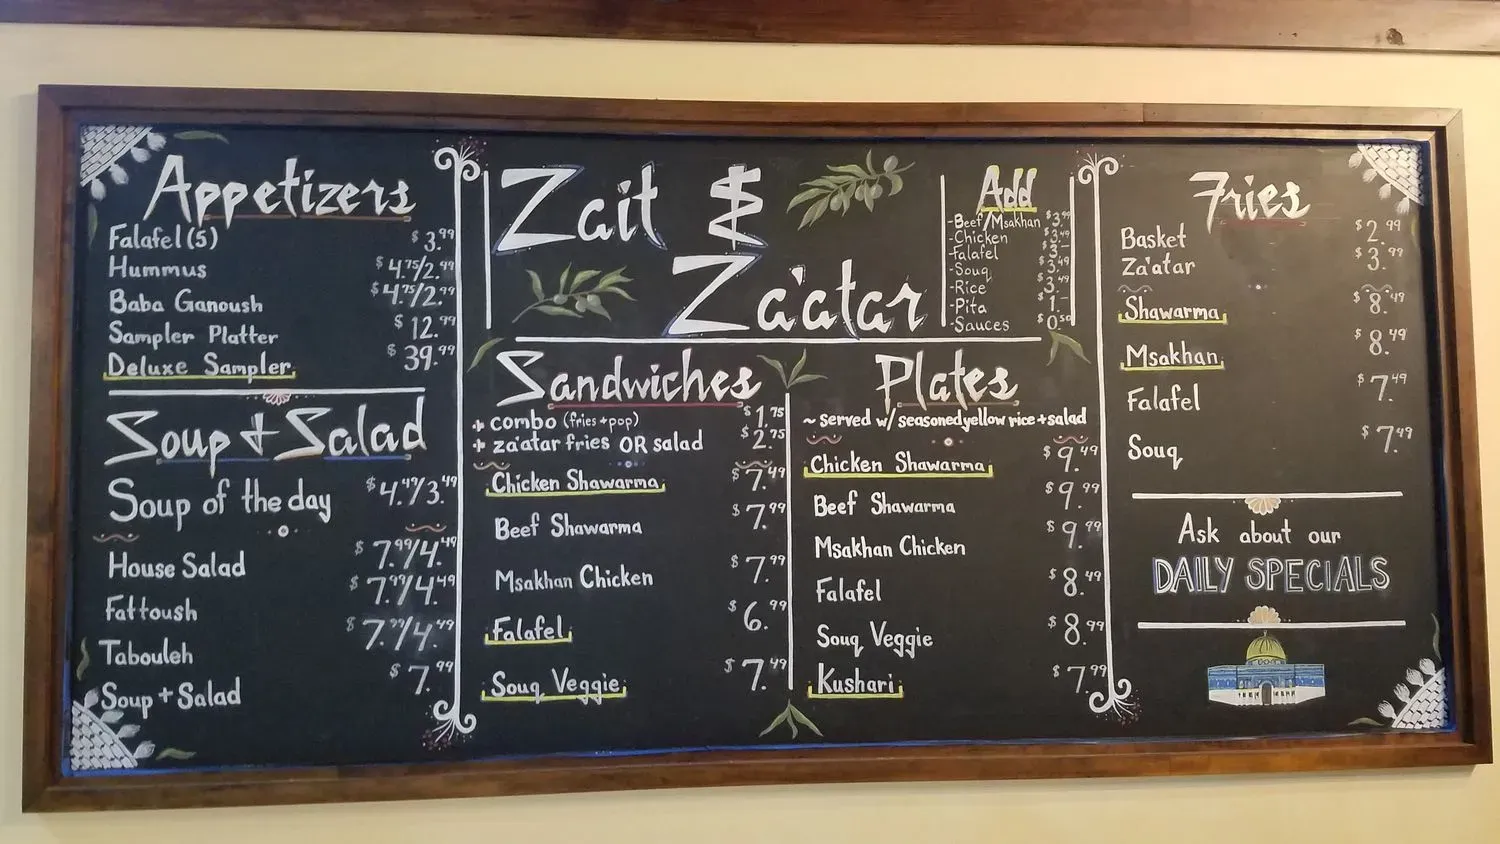 Appetizers
Falafel (5) $3.99
Hummus $4.75/2.99
Baba Ganoush $4.75/2.99
Sampler Platter $12.99
Deluxe Sampler $39.99
Soup + Salad
Soup of the day $4.49/3.49
House Salad $7.99/4.49
Fattoush $7.99/4.49
Tabouleh $7.99/4.49
Soup + Salad $7.99
Zait &
Za'atar
Add
-Beef/Msakhan $3.99
-Chicken $3.49
-Falafel $3.-
-Souq $3.49
-Rice $3.49
-Pita $1.-
-Sauces $0.50
Sandwiches
+ combo (fries + pop) $1.75
+ za'atar fries OR salad $2.75
Chicken Shawarma $7.49
Beef Shawarma $7.99
Msakhan Chicken $7.99
Falafel $6.99
Souq Veggie $7.49
Plates
~ served w/ seasoned yellow rice + salad
Chicken Shawarma $9.49
Beef Shawarma $9.99
Msakhan Chicken $9.99
Falafel $8.49
Souq Veggie $8.99
Kushari $7.99
Fries
Basket $2.99
Za'atar $3.99
Shawarma $8.49
Msakhan $8.49
Falafel $7.49
Souq $7.49
Ask about our
DAILY SPECIALS